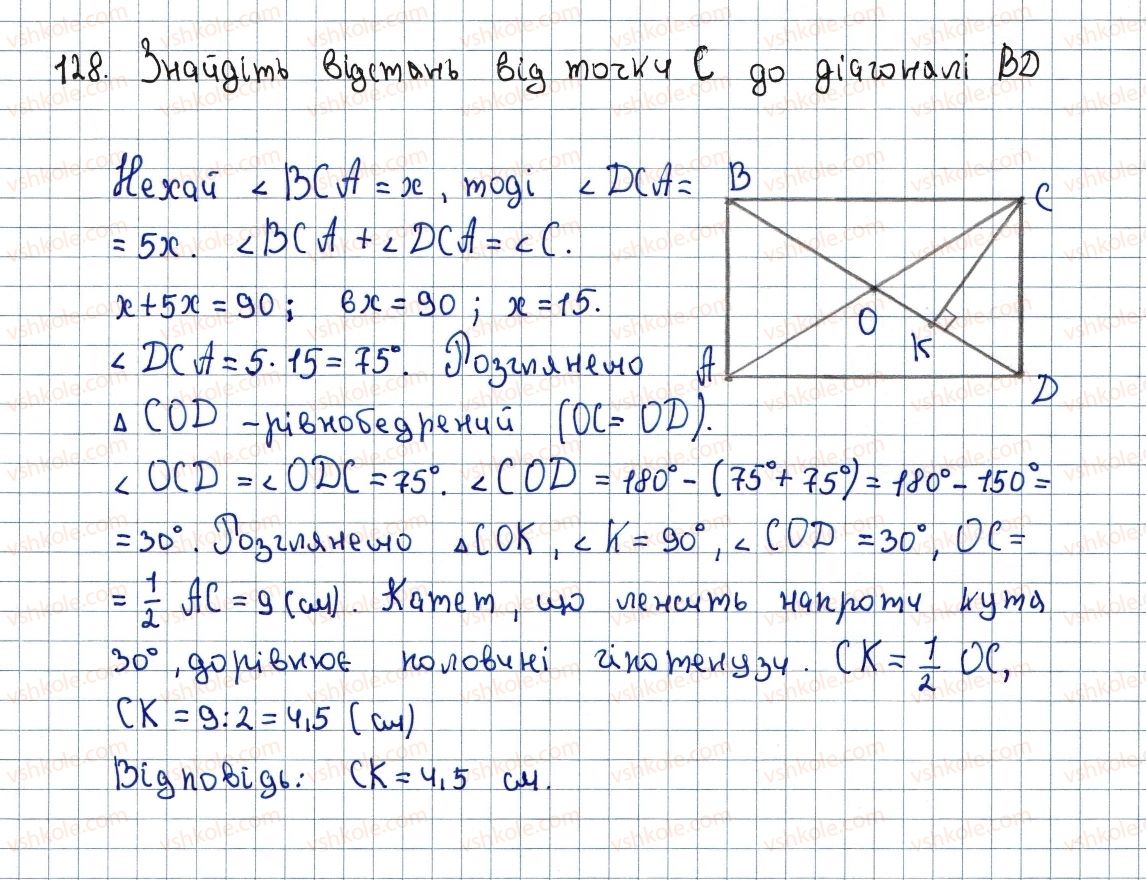 128. Знайдіть відстань від точки C до діагоналі BD
Нехай ∠BCA = x, тоді ∠DCA =
= 5x. ∠BCA + ∠DCA = ∠C.
x + 5x = 90; 6x = 90; x = 15.
∠DCA = 5 · 15 = 75°. Розглянемо
△COD – рівнобедрений (OC = OD).
∠OCD = ∠ODC = 75°. ∠COD = 180° – (75° + 75°) = 180° – 150° =
= 30°. Розглянемо △COK, ∠K = 90°, ∠COD = 30°, OC =
= 1/2 AC = 9 (см). Катет, що лежить напроти кута
30°, дорівнює половині гіпотенузи. CK = 1/2 OC,
CK = 9 : 2 = 4,5 (см)
Відповідь: CK = 4,5 см.
B
C
O
K
A
D
vshkole.com